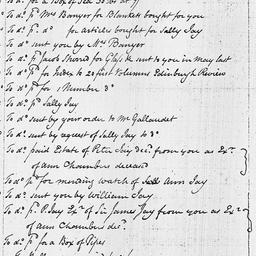 To do. for a Box of Tea 30 lbs at 7/
To do. pd. Mrs. Banyer for Blankets bought for you
To do. pd. do for articles bought for Sally Jay
To do. sent you by Mrs. Banyer
To do. pd. David Sherred for Glass &c. sent to you in May last
To do. pd. for Index to 20 first volumes Edinburgh Review
To do. pd. for 1 Number do
To do. pd. Sally Jay
To do. sent by your order to Mr. Gallaudet
To do. sent by request of Sally Jay to do
To do. paid Estate of Peter Jay decd. from you as Exr.
of Ann Chambers deceasd
To do. pd. for mending watch of Ann Jay
To do. sent you by William Jay
To do. pd. P. Jay Exr. of Sir James Jay from you as Exr.
of Ann Chambers decd.
To do. pd. for a Box of Pipes